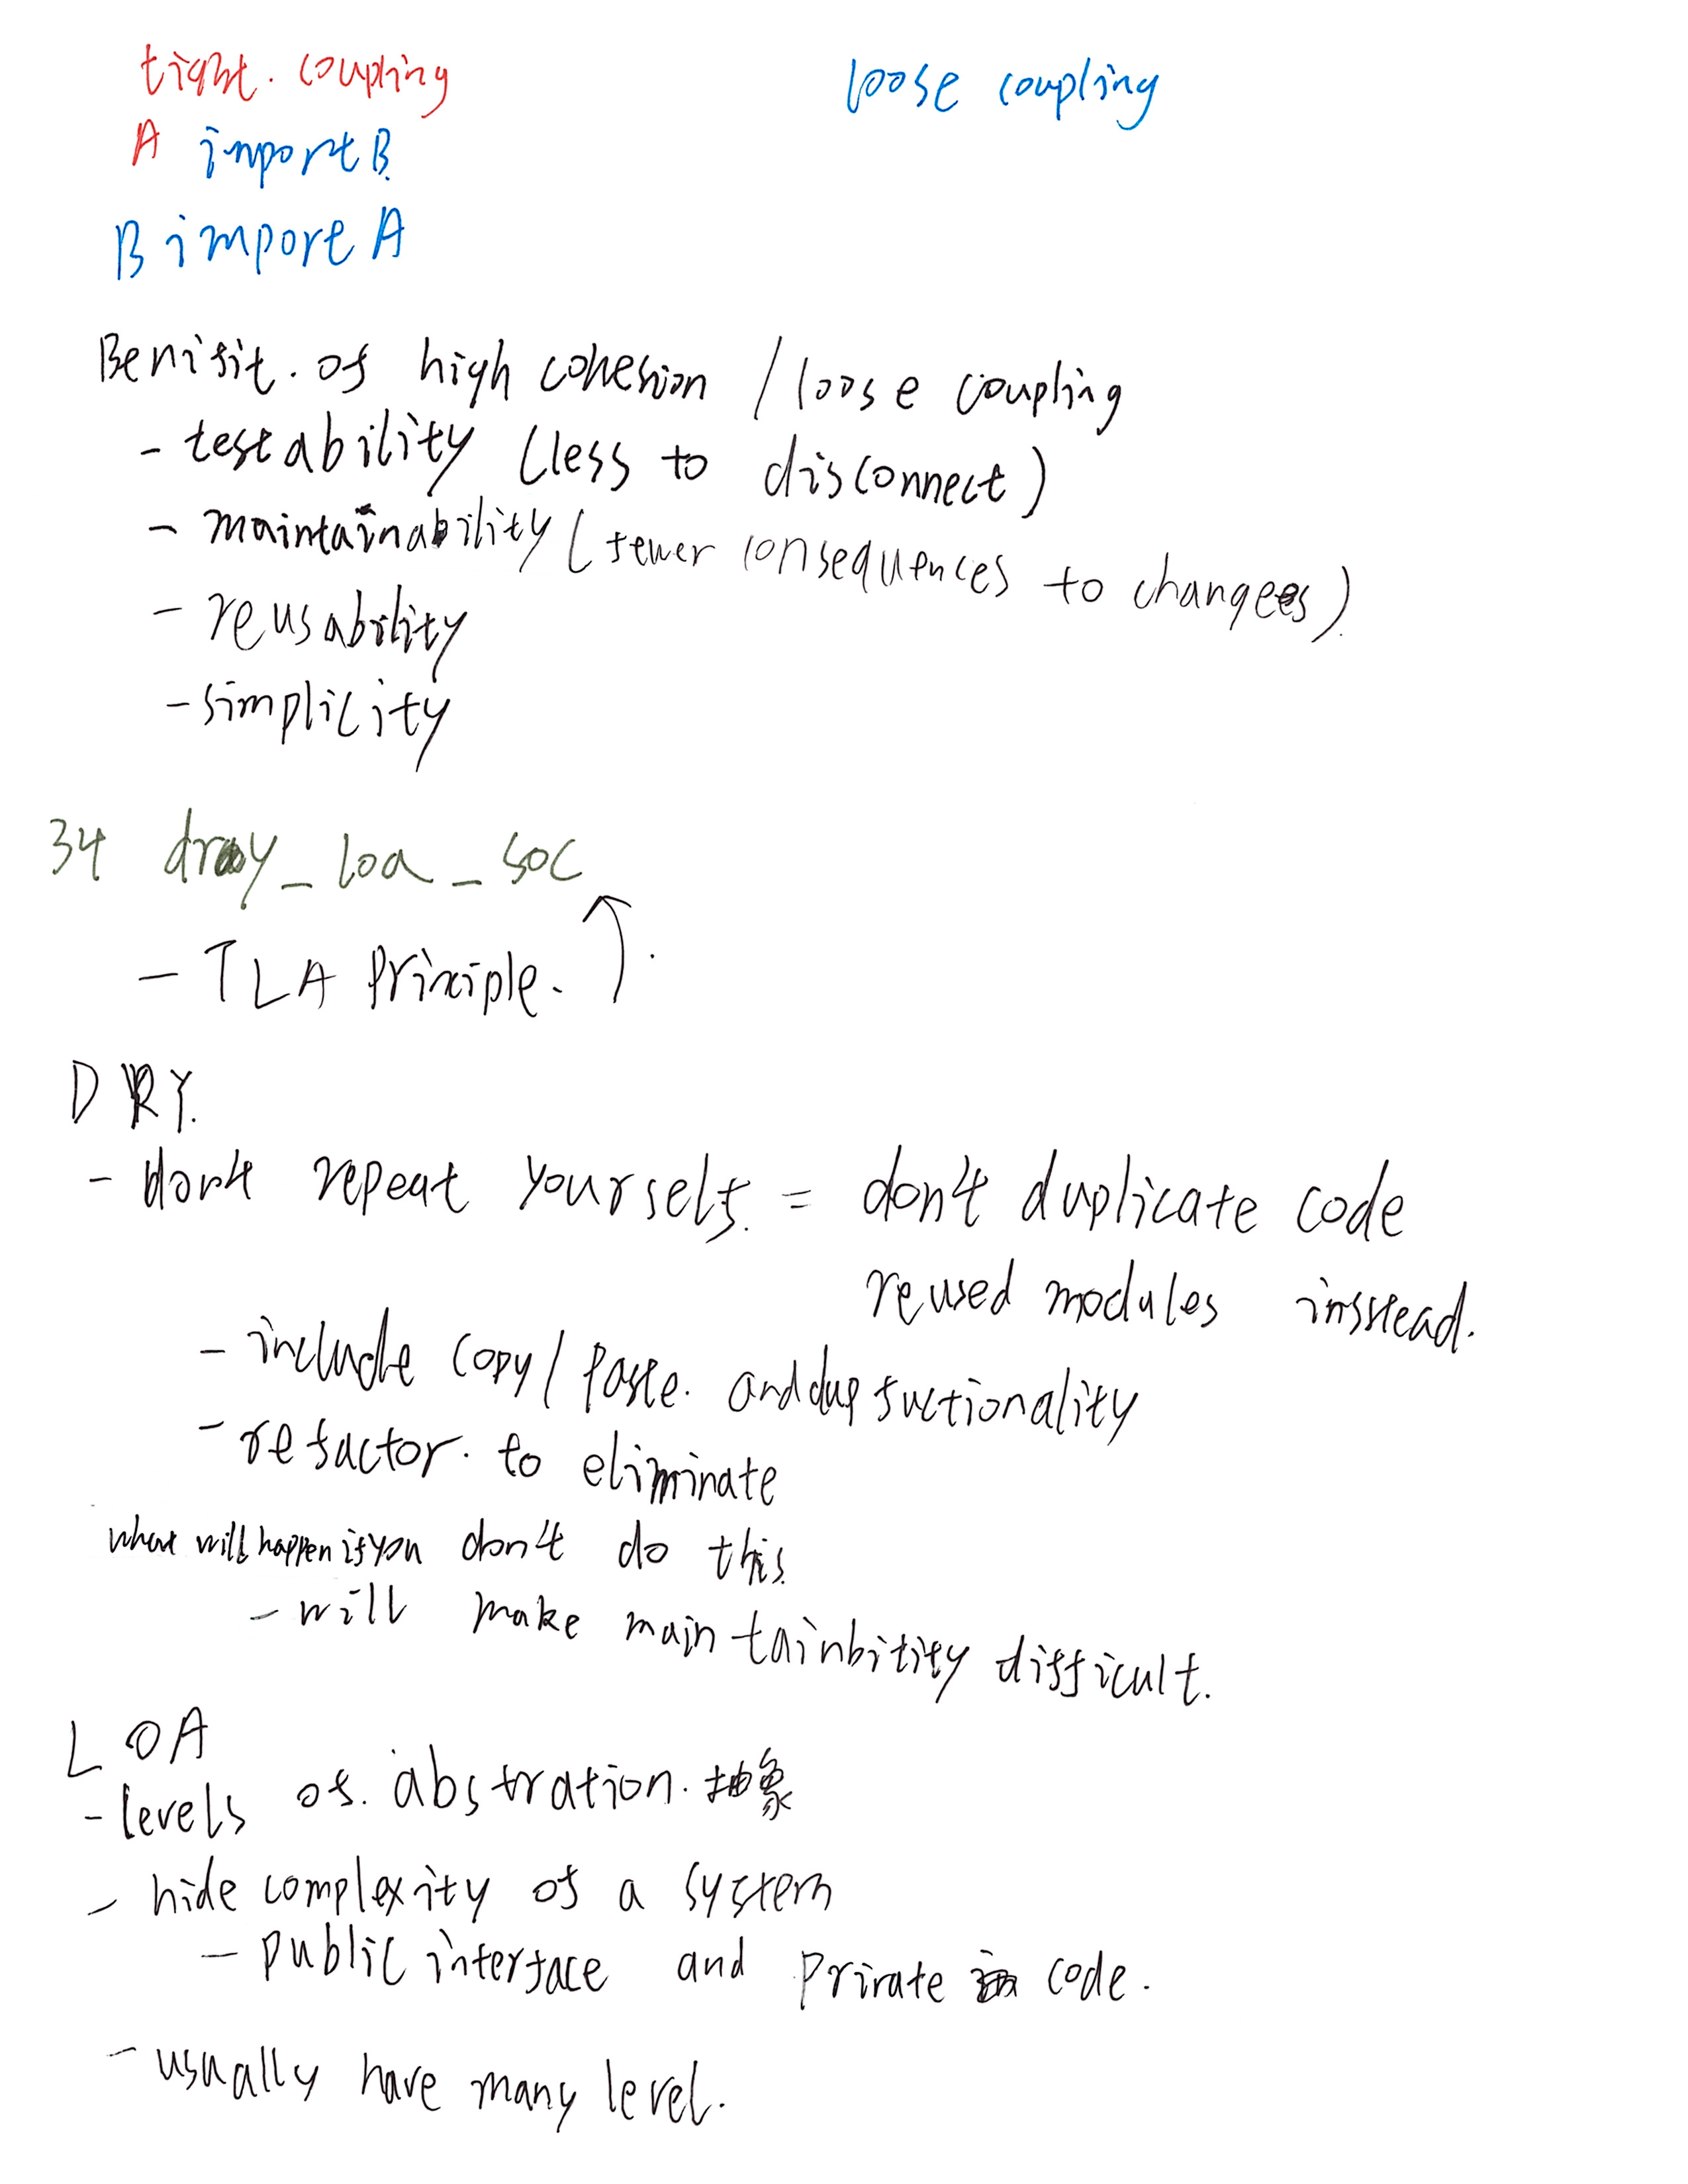 tight. coupling
loose coupling
A import B
B import A
Benifit. of high cohesion / loose coupling
- testability (less to disconnect)
- maintainability (fewer consequences to changes).
- reusability
- simplicity
34 dry_loa_soc
- TLA Principle.
DRY.
- don't repeat yourself. = don't duplicate code
reused modules instead.
- include copy/paste. and dup fuctionality
- refactor. to eliminate
what will happen if you don't do this.
- will make maintainbitity difficult.
LOA
- levels of. abstration. 抽象
- hide complexity of a system
- public interface and private code.
- usually have many level.